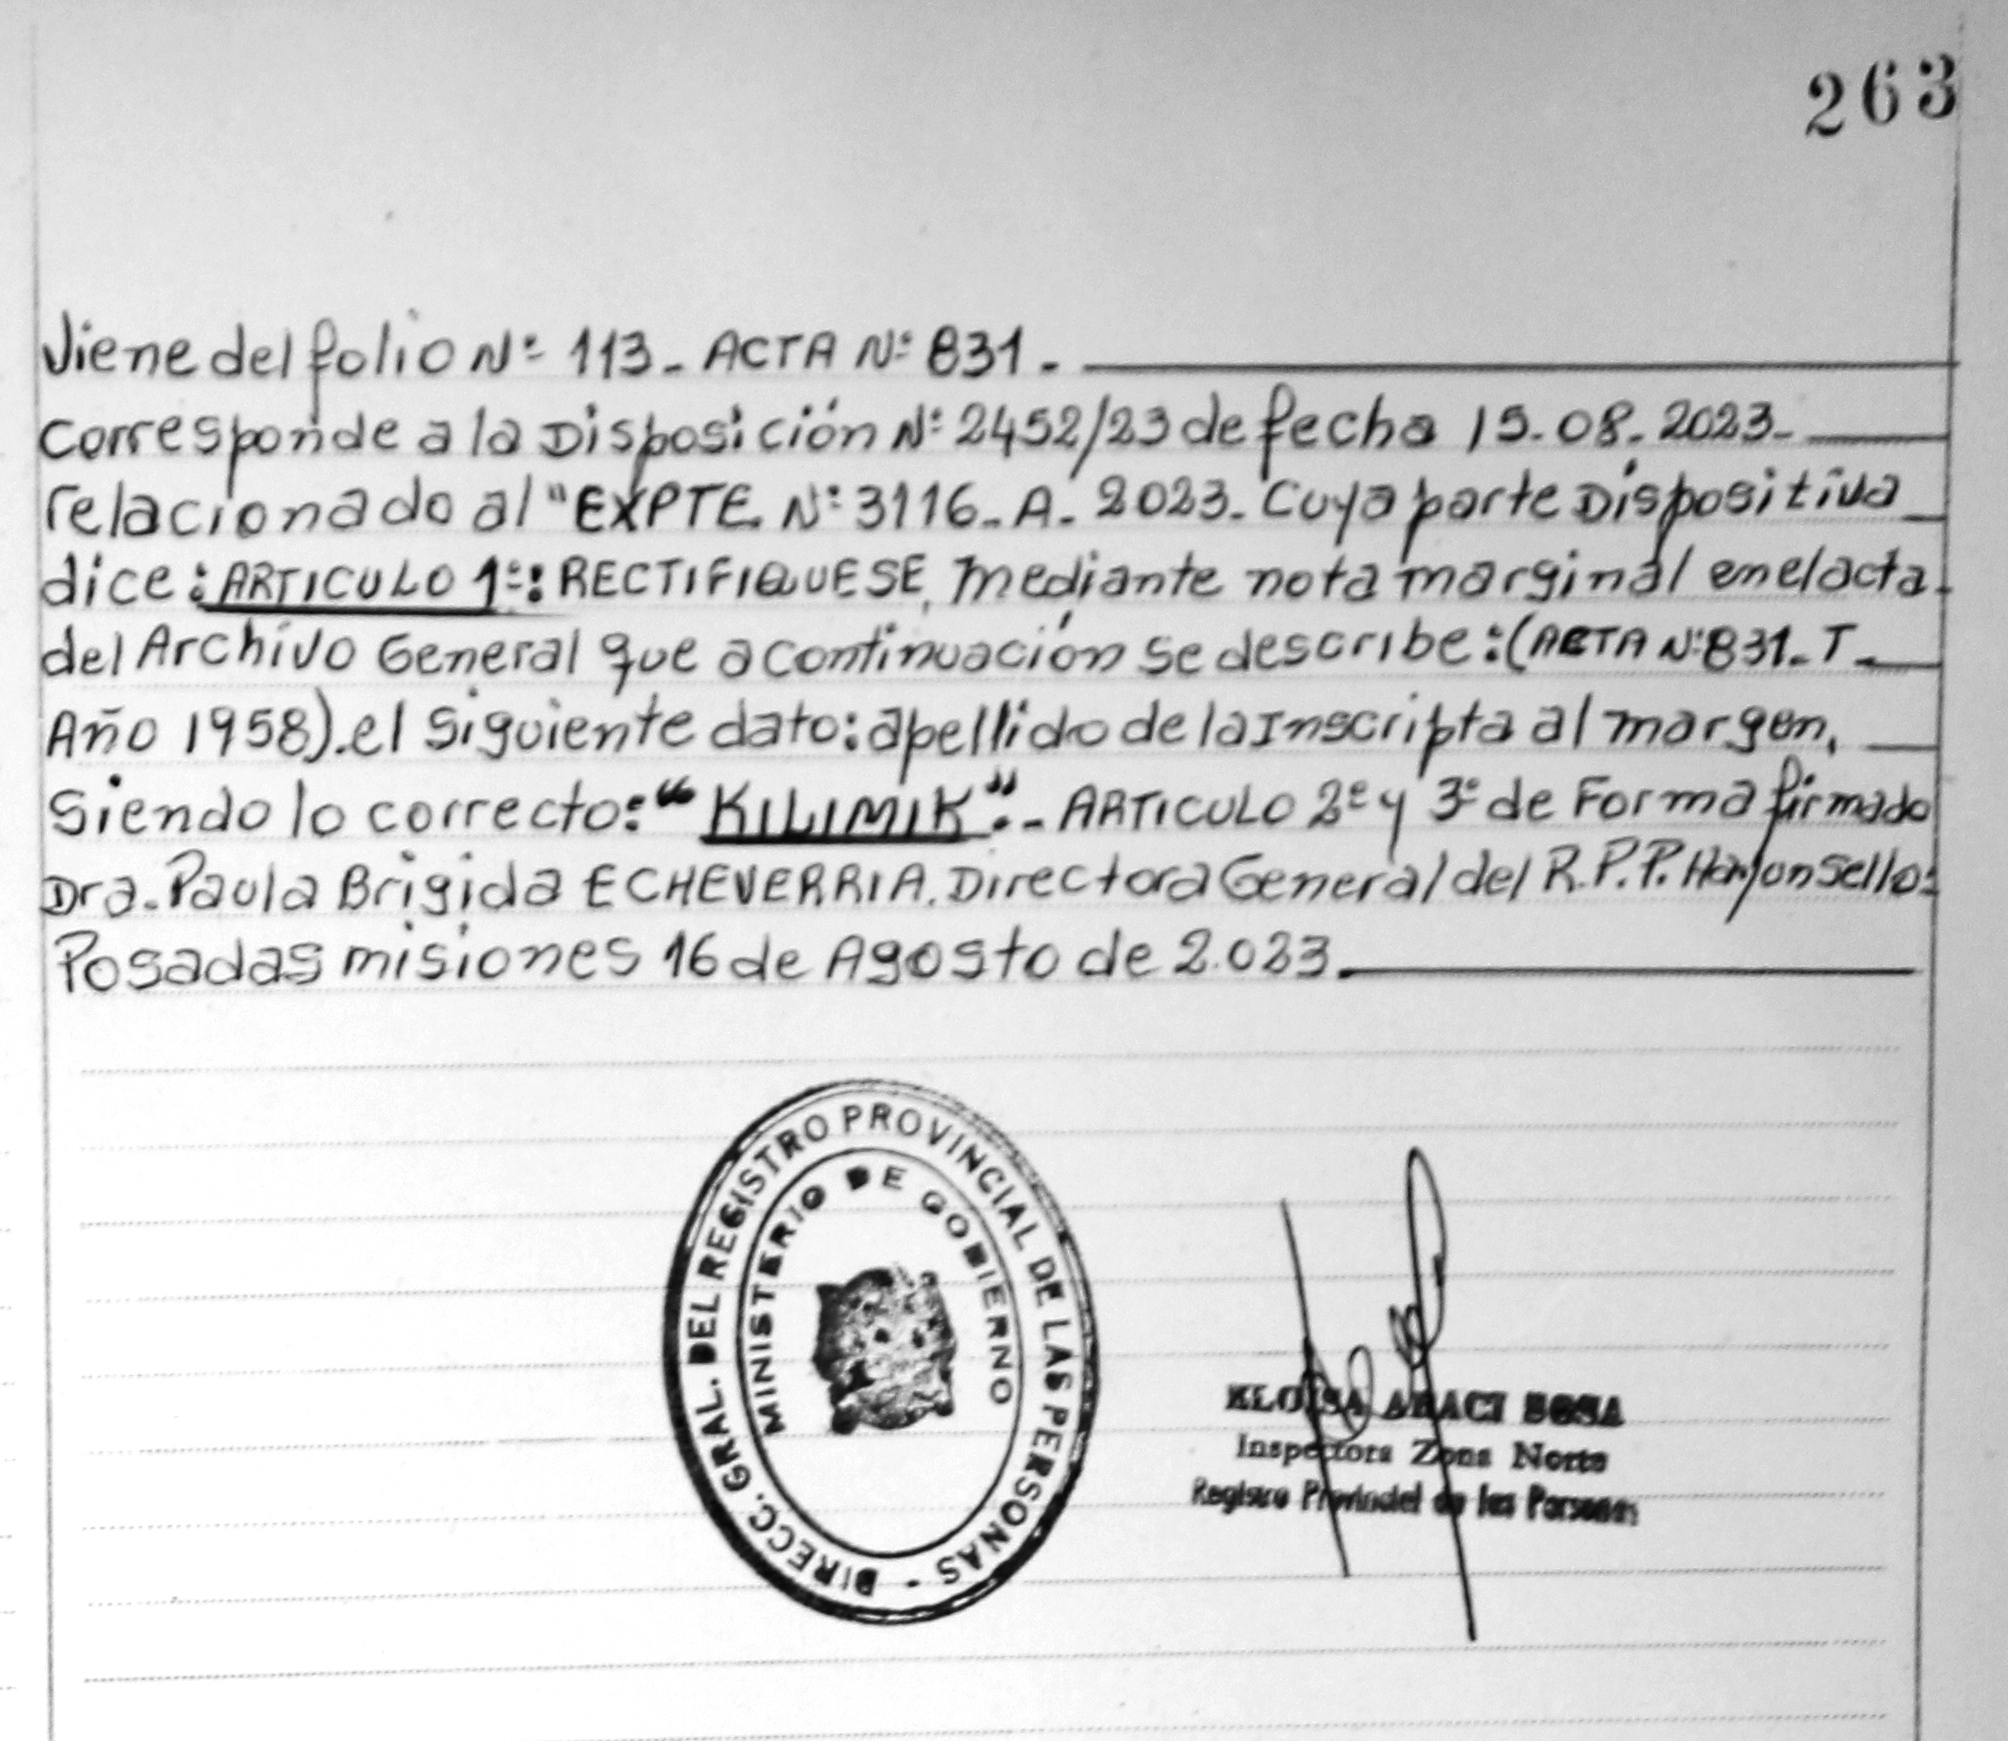 263
Viene del folio Nº 113_ ACTA Nº 831._
Corresponde a la Disposición Nº 2452/23 de fecha 15.08.2023_
relacionado al "EXPTE. Nº 3116_A_ 2023_ Cuya parte Dispositiva_
dice: ARTICULO 1º: RECTIFIQUESE, mediante nota marginal en el acta_
del Archivo General que a continuación se describe: (ACTA Nº 831_T_
Año 1958).el siguiente dato: apellido de la Inscripta al margen,_
siendo lo correcto: "KILIMIK"._ ARTICULO 2º y 3º de Forma firmado
Dra. Paula Brigida ECHEVERRIA. Directora General del R.P.P. Hay un sello:
Posadas misiones 16 de Agosto de 2.023._
DIRECC. GRAL. DEL REGISTRO PROVINCIAL DE LAS PERSONAS -
MINISTERIO DE GOBIERNO
ELOISA ARACI SOSA
Inspectora Zona Norte
Registro Provincial de las Personas